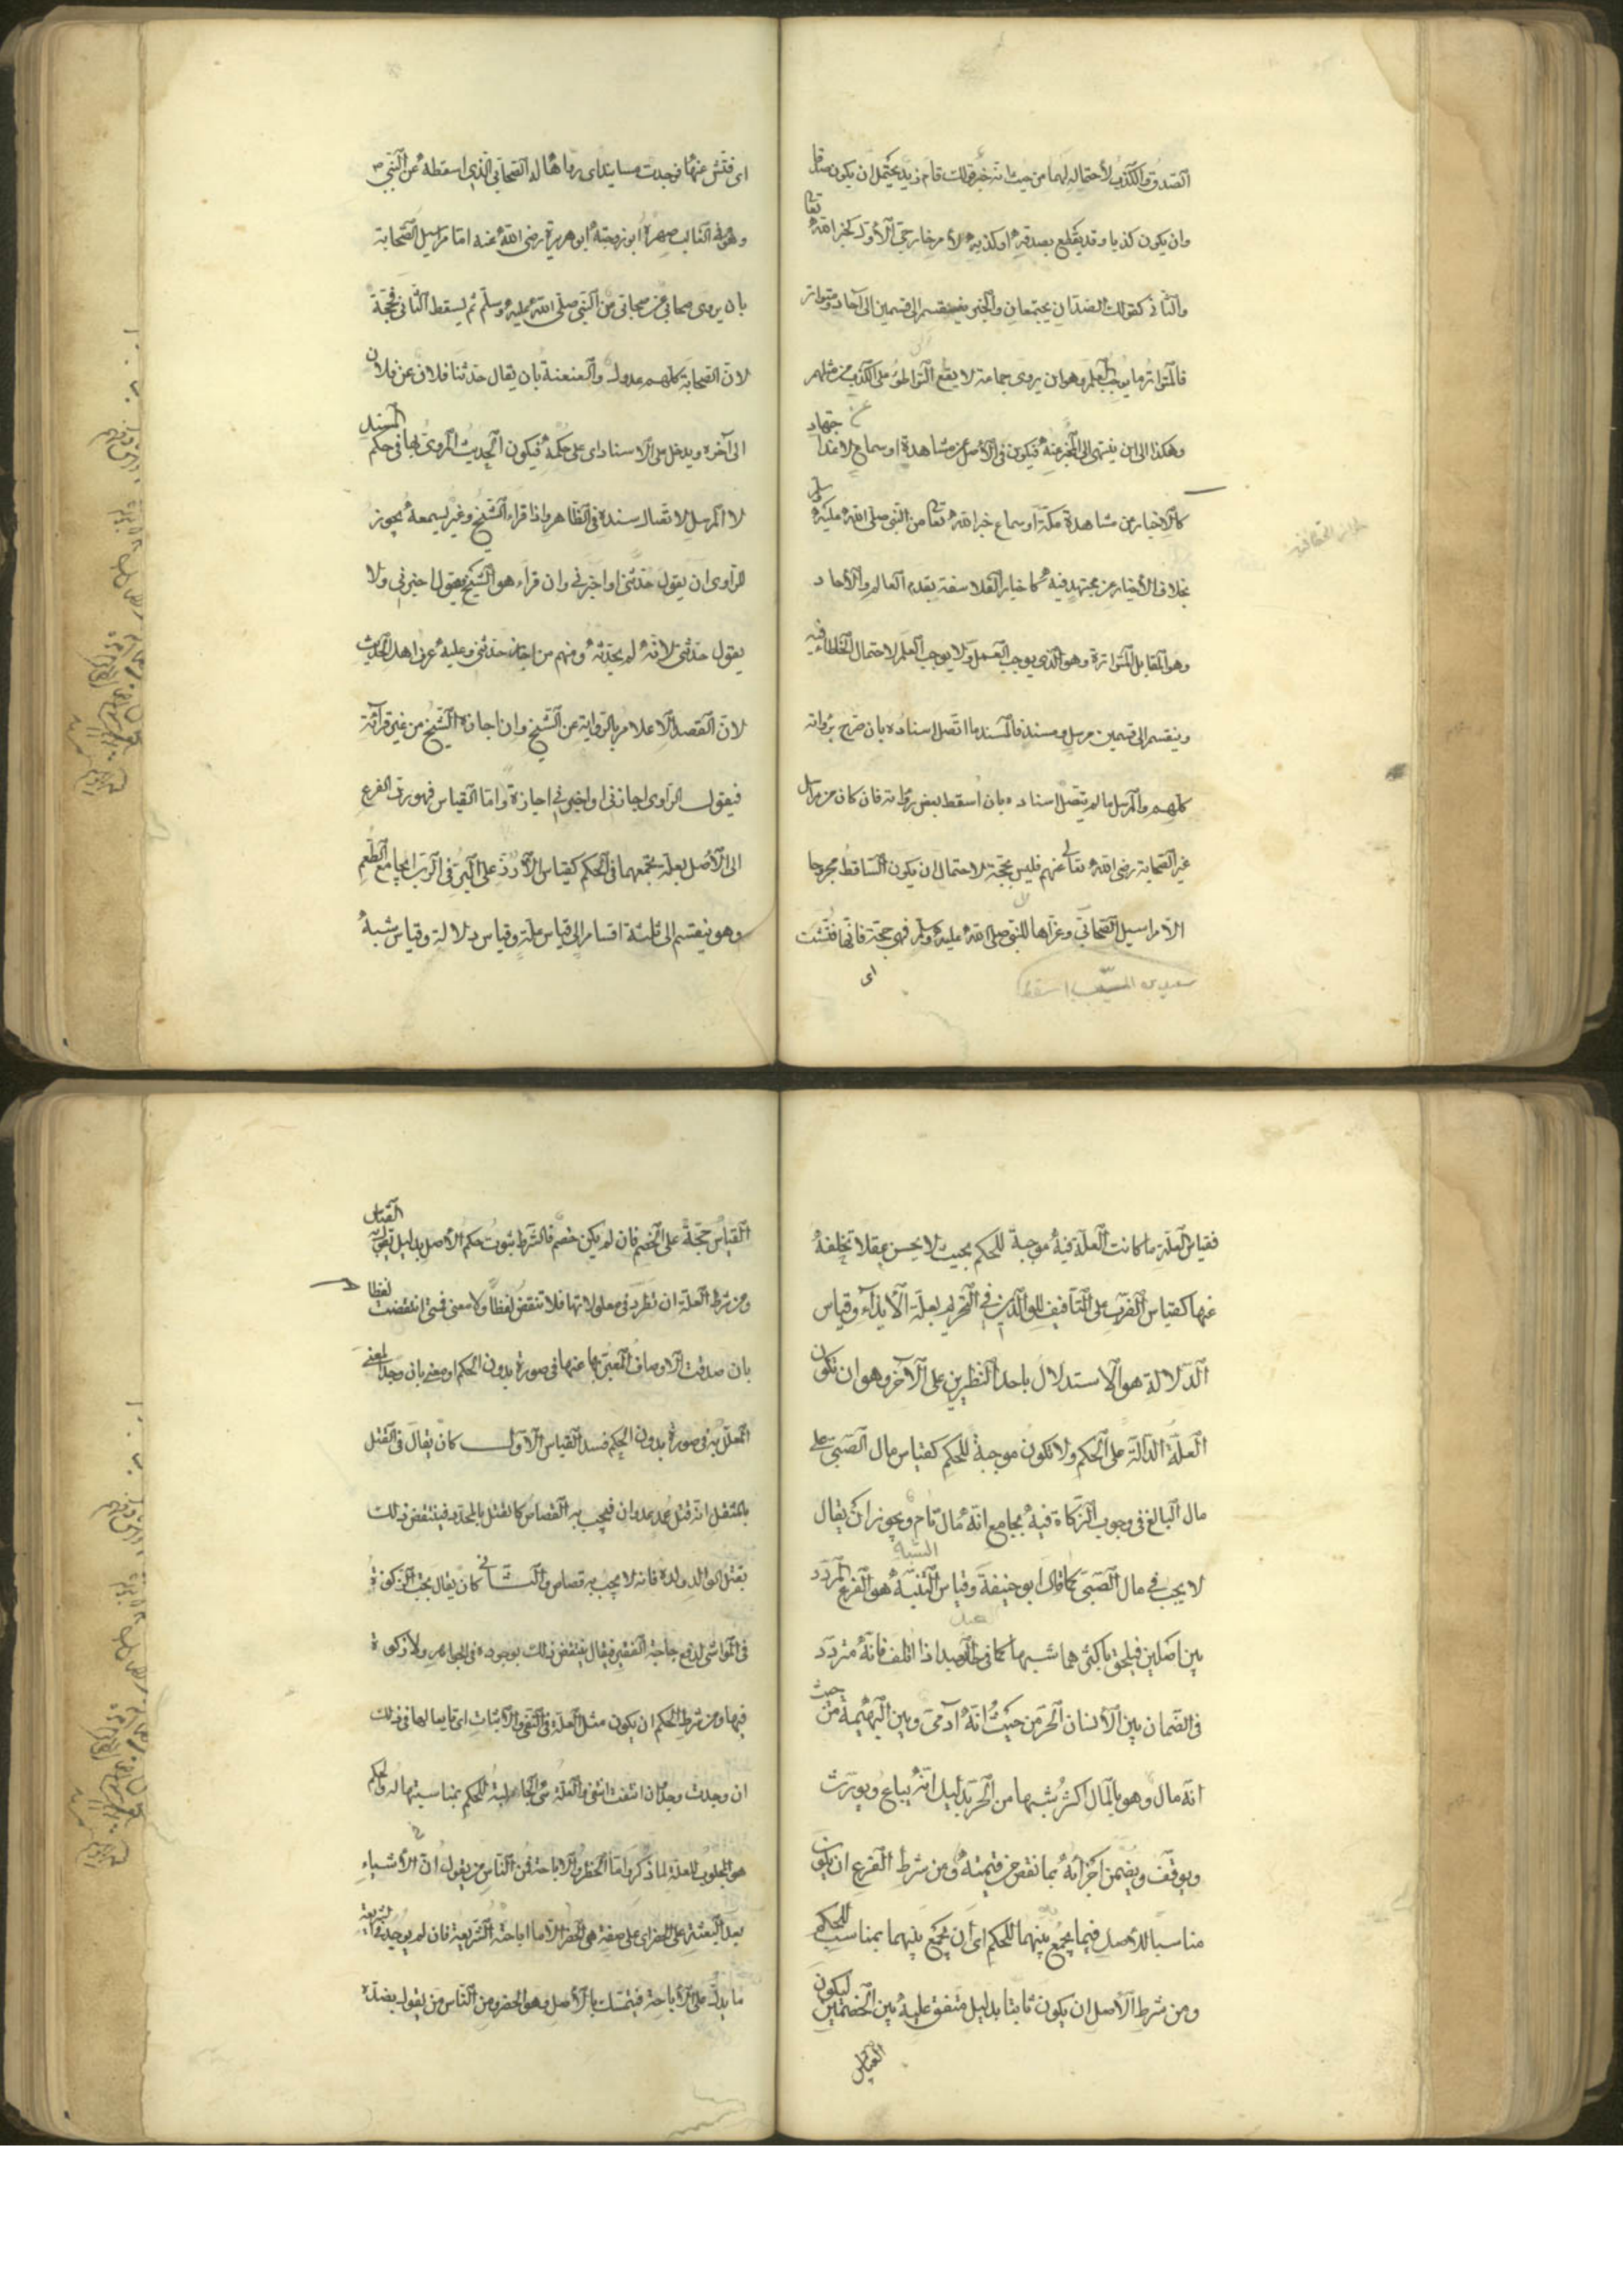 الصدق والكذب لاحتماله لهما من حيث انه خبر كقولك قام زيد يحتمل ان يكون صدقا
وان يكون كذبا وقد يقطع بصدقه او كذبه لأمر خارجي الأول كخبر الله تعالى
والثاني كقولك الضدان يجتمعان والخبر ينقسم الى قسمين الى آحاد ومتواتر
فالمتواتر ما يوجب العلم وهو ان يروى جماعة لا يقع التواطؤ على الكذب من مثلهم
وهكذا الى ان ينتهى الى المخبر عنه فيكون فى الأصل عن مشاهدة او سماع لا عن اجتهاد
كالاخبار عن مشاهدة مكة او سماع خبر الله تعالى من النبى صلى الله عليه وسلم
بخلاف الأخبار عن مجتهد فيه كاخبار الفلاسفة بقدم العالم والآحاد
وهو المقابل المتواترة وهو الذى يوجب العمل ولا يوجب العلم لاحتمال الخطاء فيه
وينقسم الى قسمين مرسل ومسند فالمسند ما اتصل اسناده بان صرح برواته
كلهم والمرسل ما لم يتصل اسناده بان أسقط بعض رواته فان كان من مراسل
غير الصحابة رضى الله تعالى عنهم فليس بحجة لاحتمال ان يكون الساقط مجروحا
الا مراسيل الصحابى وعزاها للنبى صلى الله عليه وسلم فهى حجة فانها فتشت
سعيد بن المسيب اسقط
اى
اى فتش عنها فوجدت مسانيد اى رواها له الصحابى الذى اسقطه عن النبى ص
وهو فى الغالب صهره أبو زوجته ابو هريرة رضى الله عنه اما مراسيل الصحابة
بان يروى صحابى عن صحابى من النبى صلى الله عليه وسلم ثم يسقط الثانى فحجة
لان الصحابة كلهم عدول والعنعنة بان يقال حدثنا فلان عن فلان
الى آخره ويدخل على الاسناد اى على حكمه فيكون الحديث المروى بها فى حكم المسند
لا المرسل لاتصال سنده فى الظاهر واذا قراء الشيخ وغيره يسمعه يجوز
للراوى ان يقول حدثنى او اخبرنى وان قراء هو الشيخ فيقول اخبرنى ولا
يقول حدثنى لانه لم يحدثه ومنهم من اجاز حدثنى وعليه عرف اهل الحديث
لان القصد الاعلام بالرواية عن الشيخ وان اجازه الشيخ من غير قرآئة
فيقول الراوى اجازنى او اخبرنى اجازة واما القياس فهو رد الفرع
الى الأصل بعلة تجمعهما فى الحكم كقياس الأرز على البر فى الربا بجامع الطعم
وهو ينقسم الى ثلثة اقسام الى قياس علة وقياس دلالة وقياس شبه
فقياس العلة ما كانت العلة فيه موجبة للحكم بحيث لا يحسن عقلا تخلفه
عنها كقياس الضرب على التأفيف للوالدين فى التحريم لعلة الأيذاء وقياس
الدلالة هو الاستدلال باحد النظيرين على الآخر وهو ان تكون
العلة الدالة على الحكم ولا تكون موجبة للحكم كقياس مال الصبى على
مال البالغ فى وجوب الزكاة فيه بجامع انه مال نام ويجوز ان يقال
لا يجب فى مال الصبى كما قال ابو حنيفة وقياس الشبه هو الفرع المردد
بين اصلين فيلحق باكثرهما شبها كما فى العبد اذا اتلف فانه متردد
فى الضمان بين الأنسان الحر من حيث انه آدمى وبين البهيمة من حيث
انه مال وهو بالمال اكثر شبها من الحر بدليل انه يباع ويورث
ويوقف ويضمن اجزائه بما نقص من قيمته ومن شرط الفرع ان يكون
مناسبا للأصل فيما يجمع بينهما للحكم اى ان يجمع بينهما بمناسب للحكم
ومن شرط الأصل ان يكون ثابتا بدليل متفق عليه بين الخصمين ليكون
القياس
القياس حجة على الخصم فان لم يكن خصم فالشرط ثبوت حكم الأصل بدليل يقول به القياس
ومن شرط العلة ان تطرد فى معلولاتها فلا تنقض لفظا ولا معنى فمتى انتقضت لفظا
بان صدقت الاوصاف المعبر بها عنها فى صورة بدون الحكم او معنى بان وجد المعنى
المعلل به فى صورة بدون الحكم فسد القياس الأول كان يقال فى القتل
بالمثقل انه قتل عمد عدوان فيجب به القصاص كالقتل بالمحدد فينتقض ذلك
بقتل الوالد ولده فانه لا يجب به قصاص والثانى كان يقال يجب الزكوة
فى المواشى لدفع حاجة الفقير فيقال ينتقض ذلك بوجوده فى الجواهر ولا زكوة
فيها ومن شرط الحكم ان يكون مثل العلة فى النفى والأثبات اى تابعا لها فى ذلك
ان وجدت وجد وان انتفت انتفى والعلة هى الجالبة للحكم بمناسبتها له والحكم
هو المجلوب للعلة لما ذكر واما الحظر والاباحة فمن الناس من يقول ان الأشياء
بعد البعثة على الحضر اى على صفة هى الحضر الا ما اباحته الشريعة فان لم يوجد فى الشريعة
ما يدل على الأباحة فيتمسك بالأصل وهو الحضر ومن الناس من يقول بضده